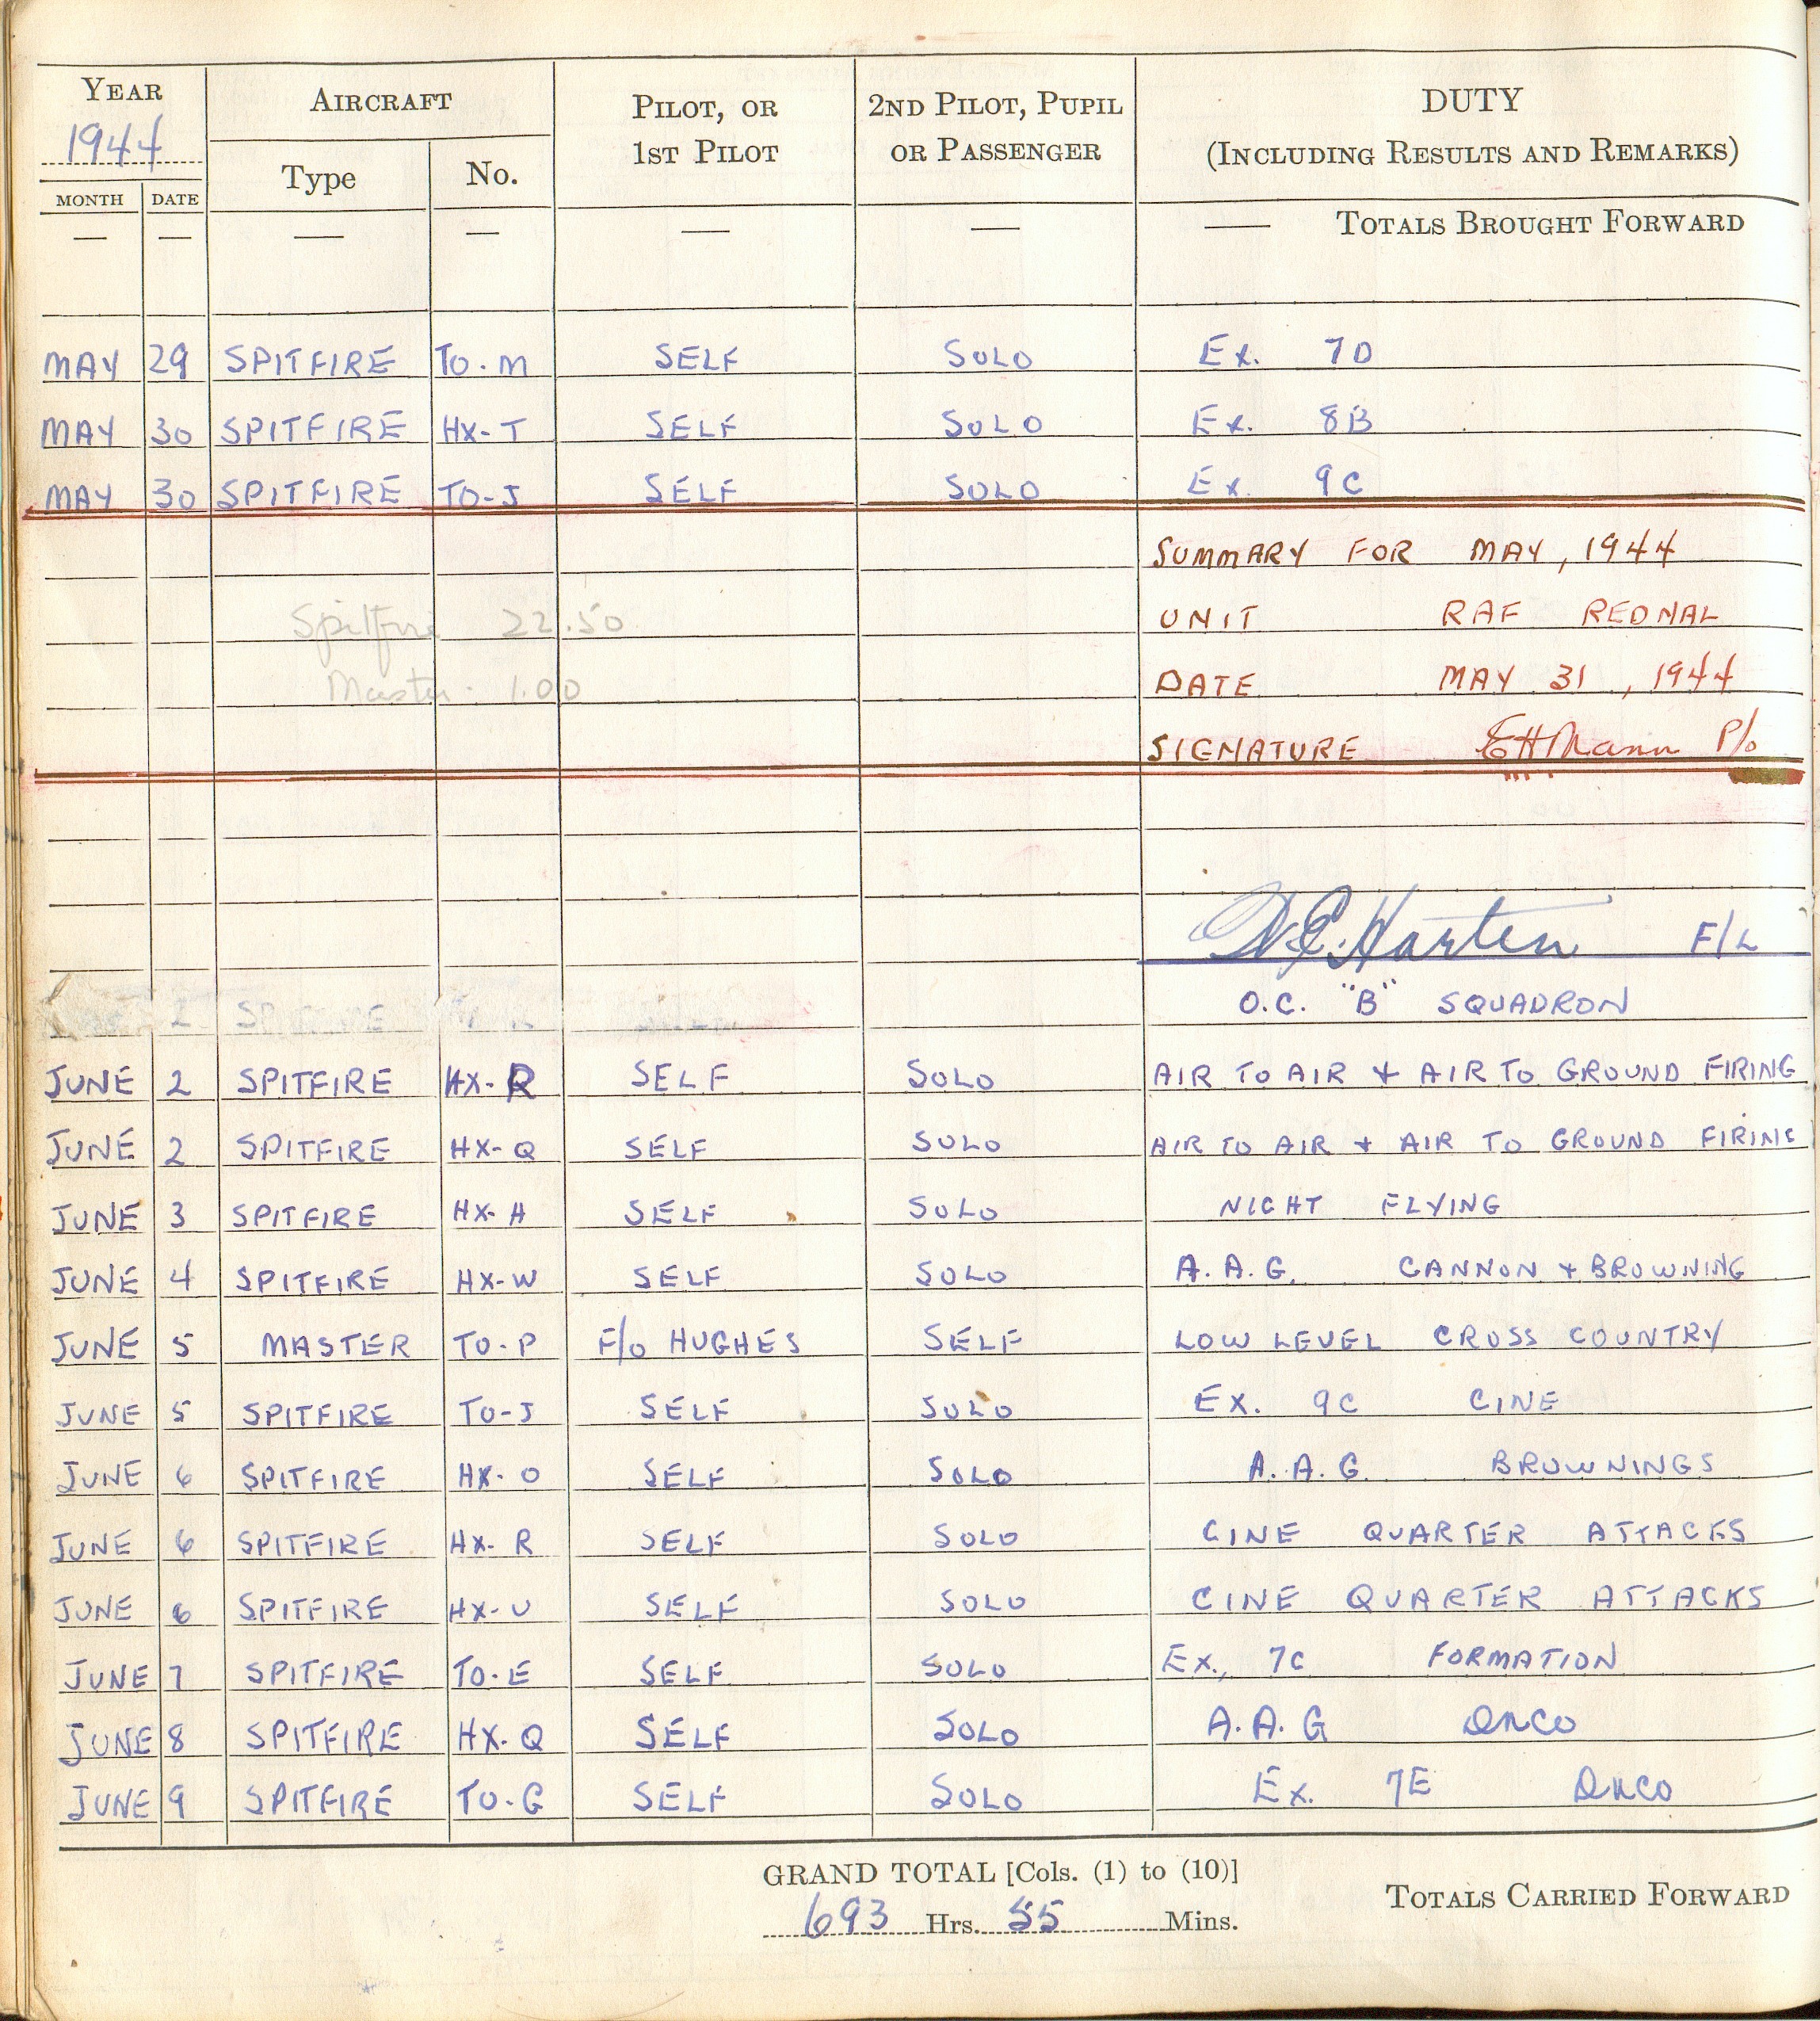 YEAR AIRCRAFT PILOT, OR 2ND PILOT, PUPIL DUTY
1944 1ST PILOT OR PASSENGER (INCLUDING RESULTS AND REMARKS)
Type No.
MONTH DATE
— — — — — — — TOTALS BROUGHT FORWARD
MAY 29 SPITFIRE TO-M SELF SOLO Ex. 7D
MAY 30 SPITFIRE HX-T SELF SOLO Ex. 8B
MAY 30 SPITFIRE TO-J SELF SOLO Ex. 9C
SUMMARY FOR MAY, 1944
Spitfire 22.50 UNIT RAF REDNAL
Master 1.00 DATE MAY 31, 1944
SIGNATURE EHMann P/o
E. Harten F/L
SPITFIRE O.C. "B" SQUADRON
JUNE 2 SPITFIRE HX-R SELF SOLO AIR TO AIR + AIR TO GROUND FIRING
JUNE 2 SPITFIRE HX-Q SELF SOLO AIR TO AIR + AIR TO GROUND FIRING
JUNE 3 SPITFIRE HX-H SELF SOLO NIGHT FLYING
JUNE 4 SPITFIRE HX-W SELF SOLO A.A.G. CANNON + BROWNING
JUNE 5 MASTER TO-P F/o HUGHES SELF LOW LEVEL CROSS COUNTRY
JUNE 5 SPITFIRE TO-J SELF SOLO EX. 9C CINE
JUNE 6 SPITFIRE HX-O SELF SOLO A.A.G. BROWNINGS
JUNE 6 SPITFIRE HX-R SELF SOLO CINE QUARTER ATTACKS
JUNE 6 SPITFIRE HX-U SELF SOLO CINE QUARTER ATTACKS
JUNE 7 SPITFIRE TO-E SELF SOLO Ex. 7C FORMATION
JUNE 8 SPITFIRE HX-Q SELF SOLO A.A.G DNCO
JUNE 9 SPITFIRE TO-G SELF SOLO Ex. 7E DNCO
GRAND TOTAL [Cols. (1) to (10)]
693 Hrs. 55 Mins. TOTALS CARRIED FORWARD